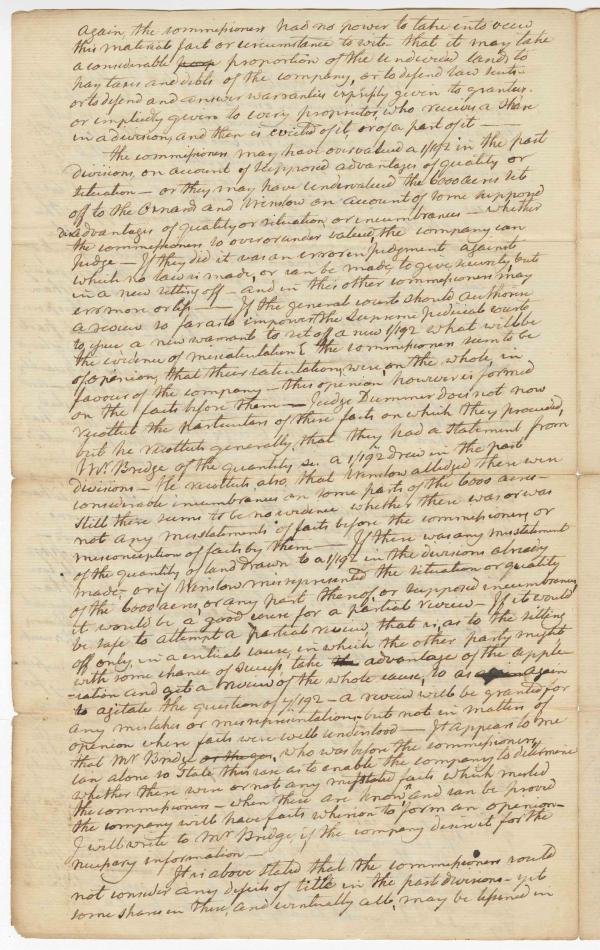 again, the commissioners had no power to take into view
this material fact or circumstance to wit that it may take
a considerable proportion of the undivided lands to
pay taxes and debts of the company, or to defend law suits
or to defend and answer warranties expressly given to grantees
or impliedly given to every proprietor, who receives a share
in a division, and then is evicted of it, or of a part of it —
The commissioners may have overvalued a 1/192 in the past
divisions, on account of supposed advantages of quality or
situation — or they may have undervalued the 6000 acres set
off to the and Winslow on account of some supposed
disadvantages of quality or situation, or incumbrances — whether
the commissioners so over or under valued, the company can
judge — If they did it was an error in judgment against
which no law is made, or can be made, to give security, but
in a new setting off — and in this other commissioners may
err more or less — If the general court should authorise
a review so far as to impower the Supreme Judicial court
to, issue a new warrant to set off a new 1/192 what will be
the evidence of miscalculation? The commissioners seem to be
of opinion, that their calculations, were on the whole, in
favour of the company — this opinion however is formed
on the facts before them — Judge Dummer does not now
recollect the particulars of these facts on which they proceeded,
but he recollects generally, that they had a statement from
Mr. Bridge of the quantity &c a 1/192 drew in the past
divisions — He recollects also, that Winslow alledged there were
considerable incumbrances on some parts of the 6000 acres —
Still there seems to be no evidence whether there was or was
not any misstatements of facts before the commissioners, or
misconception of facts by them — If there was any misstatement
of the quantity of land drawn to a 1/192 in the divisions already
made, or if Winslow misrepresented the situation or quality
of the 6000 acres, or any part thereof, or supposed incumbrances
it would be a good cause for a partial review — If it would
be safe to attempt a partial review, that is, as to the setting
off only, in a critical cause, in which the other party might
with some chance of success take the advantage of the appli-
-cation and get a review of the whole cause, so as again again
to agitate the question of 7/192 — a review will be granted for
any mistakes or misrepresentations, but not in matters of
opinion where facts were well understood — It appears to me
that Mr Bridge or the, who was before the commissioners,
can alone so state this case as to enable the company to determine
whether there were or not any misstated facts which misled
the commissioners — when these are known and can be proved
the company will have facts whereon to form an opinion —
I will write to Mr Bridge, if the company desire it for the
necessary information —
It is above stated that the commissioners could
not consider any defects of title in the past divisions — yet
some shares in these, and eventually all, may be lessened in